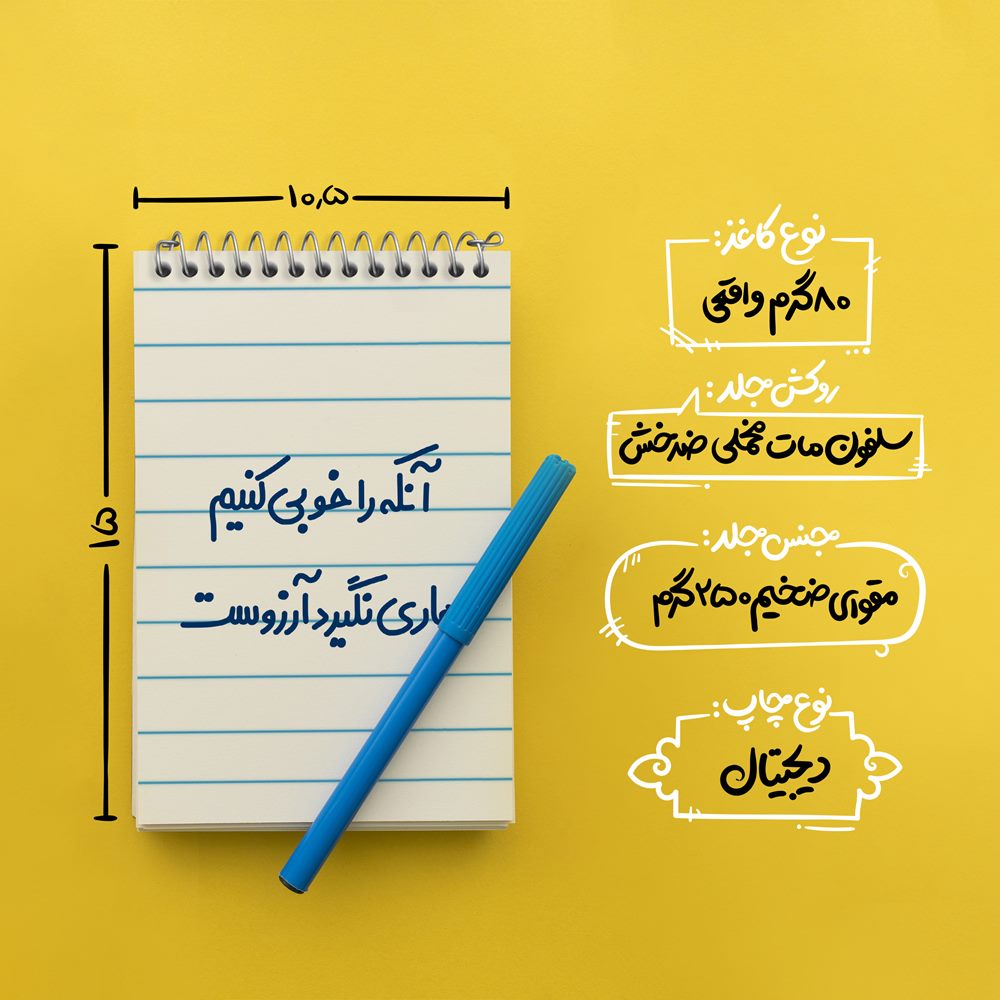 ۱۰٫۵
۱۵
آنکه را خوبی کنیم
هاری نگیرد آرزوست
نوع کاغذ:
۸۰ گرم واقعی
روکش جلد:
سلفون مات مخملی ضدخش
جنس جلد:
مقوای ضخیم ۲۵۰ گرم
نوع چاپ:
دیجیتال